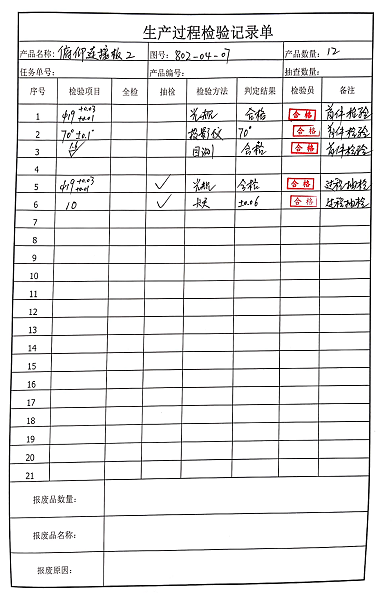 生产过程检验记录单
产品名称: 俯仰连接板2 图号: 802-04-07 产品数量: 12
任务单号: 产品编号: 抽查数量:
序号 检验项目 全检 抽检 检验方法 判定结果 检验员 备注
1 φ19 +0.03 +0.01 光机 合格 合格 首件检验
2 70°±0.1° 投影仪 70° 合格 首件检验
3 1.6 目测 合格 合格 首件检验
4
5 φ19 +0.03 +0.01 ✓ 光机 合格 合格 过程抽检
6 10 ✓ 卡尺 ±0.06 合格 过程抽检
7
8
9
10
11
12
13
14
15
16
17
18
19
20
21
报废品数量:
报废品名称:
报废原因: